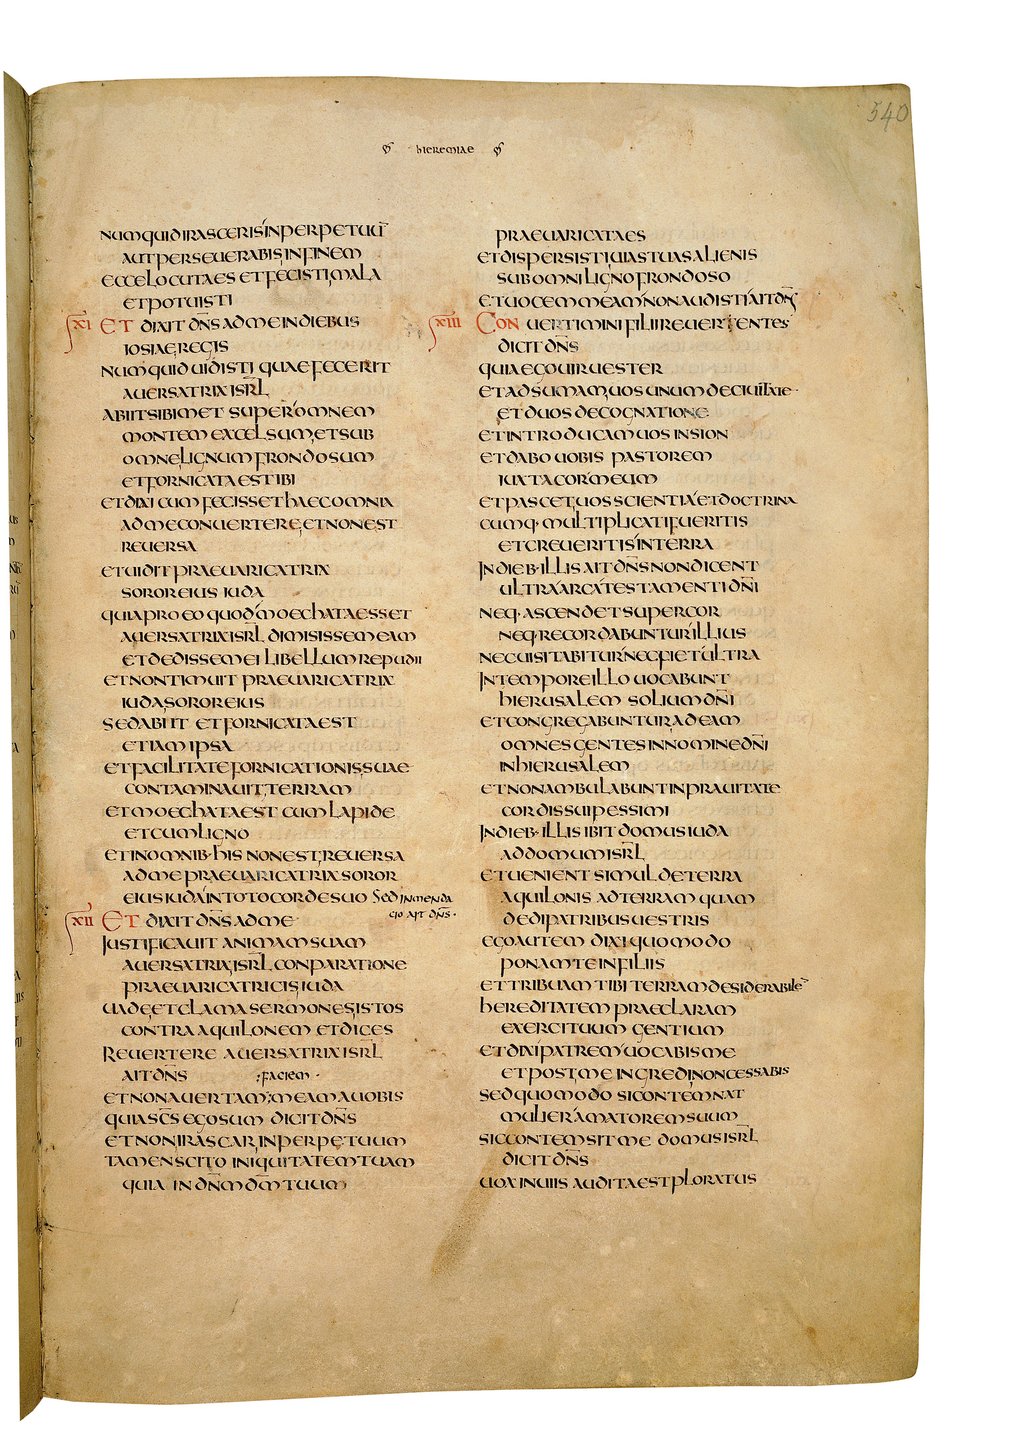 540
hieremiae
numquid irasceris in perpetuū
aut perseuerabis in finem
ecce locuta es et fecisti mala
et potuisti
xi Et dixit dn̄s ad me in diebus
iosiae regis
numquid uidisti quae fecerit
auersatrix isrl̄
abiit sibimet super omnem
montem excelsum et sub
omne lignum frondosum
et fornicata est ibi
et dixi cum fecisset haec omnia
ad me conuertere et non est
reuersa
et uidit praeuaricatrix
soror eius iuda
quia pro eo quod moechata esset
auersatrix isrl̄ dimisissem eam
et dedissem ei libellum repudii
et non timuit praeuaricatrix
iuda soror eius
sed abiit et fornicata est
etiam ipsa
et facilitate fornicationis suae
contaminauit terram
et moechata est cum lapide
et cum ligno
et in omnib· his non est reuersa
ad me praeuaricatrix soror
eius iuda in toto corde suo sed in menda
cio ait dn̄s·
xii Et dixit dn̄s ad me
iustificauit animam suam
auersatrix isrl̄ conparatione
praeuaricatricis iuda
uade et clama sermones istos
contra aquilonem et dices
reuertere auersatrix isrl̄
ait dn̄s :faciem ·
et non auertam: meam a uobis
quia sc̄s ego sum dicit dn̄s
et non irascar in perpetuum
tamen scito iniquitatem tuam
quia in dn̄m dm̄ tuum
praeuaricata es
et dispersisti uias tuas alienis
sub omni ligno frondoso
et uocem meam non audisti ait dn̄s
xiii Conuertimini filii reuertentes
dicit dn̄s
quia ego uir uester
et adsumam uos unum de ciuitate·
et duos de cognatione
et introducam uos in sion
et dabo uobis pastorem
iuxta cor meum
et pascet uos scientia et doctrina
cumq· multiplicati fueritis
et creueritis in terra
in dieb· illis ait dn̄s non dicent
ultra arca testamenti dn̄i
neq· ascendet super cor
neq· recordabuntur illius
nec uisitabitur nec fiet ultra
in tempore illo uocabunt
hierusalem solium dn̄i
et congregabuntur ad eam
omnes gentes in nomine dn̄i
in hierusalem
et non ambulabunt in prauitate
cordis sui pessimi
in dieb· illis ibit domus iuda
ad domum isrl̄
et uenient simul de terra
aquilonis ad terram quam
dedi patribus uestris
ego autem dixi quomodo
ponam te in filiis
et tribuam tibi terram desiderabilē
hereditatem praeclaram
exercituum gentium
et dixi patrem uocabis me
et post me ingredi non cessabis
sed quomodo si contemnat
mulier amatorem suum
sic contemsit me domus isrl̄
dicit dn̄s
uox in uiis audita est ploratus